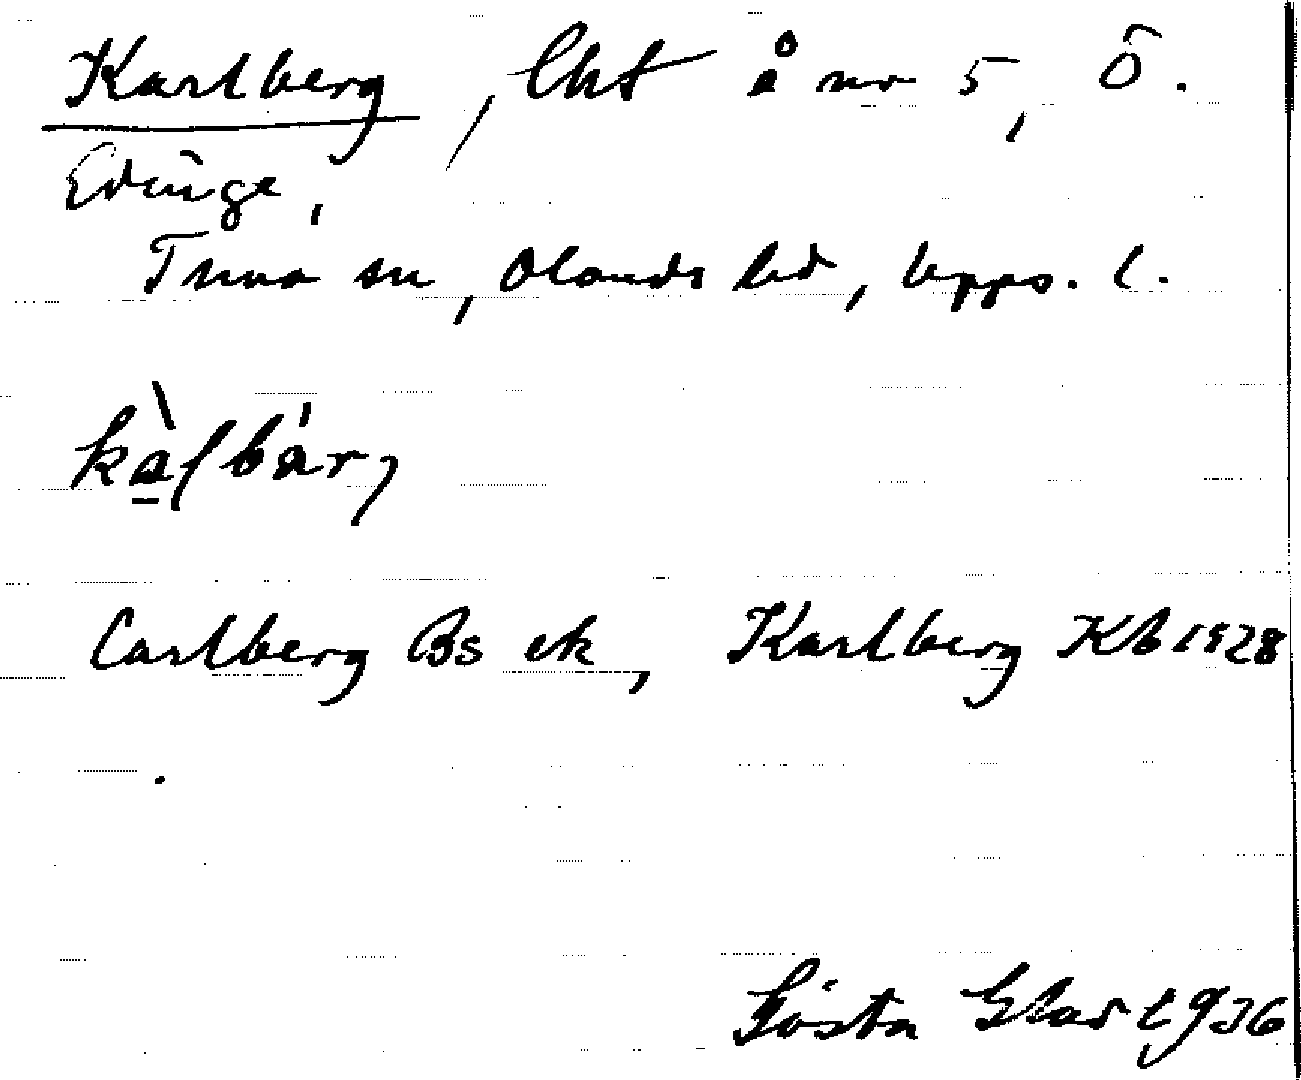 Karlberg, lht å nr 5, Ö.
Edinge,
Tuna sn, Olands hd, Upps. l.
kàlbár,
Carlberg Bs ek, Karlberg Kb 1928
Gösta 1936